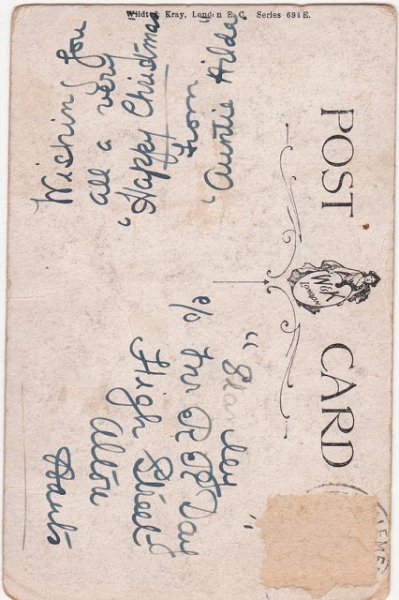 Wildt & Kray, London E.C. Series 694 E.
POST CARD
W&K
LONDON
Wishing you
all a very
"Happy Christmas
from
"Auntie Hilda"
"Stanley"
c/o Mr R R Day
High Street
Alton
Hants